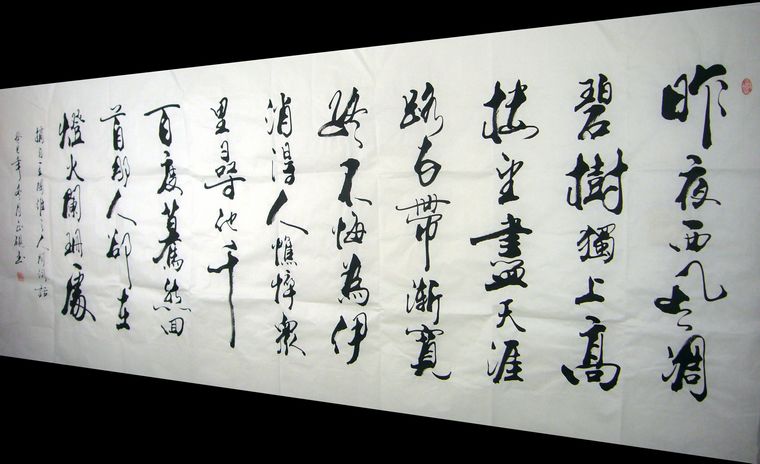 昨夜西風凋
碧樹獨上高
楼望盡天涯
路衣帶漸寬
終不悔為伊
消得人憔悴衆
里尋他千
百度驀然回
首那人卻在
燈火闌珊處
摘自王國維之人间詞話
癸巳年冬月